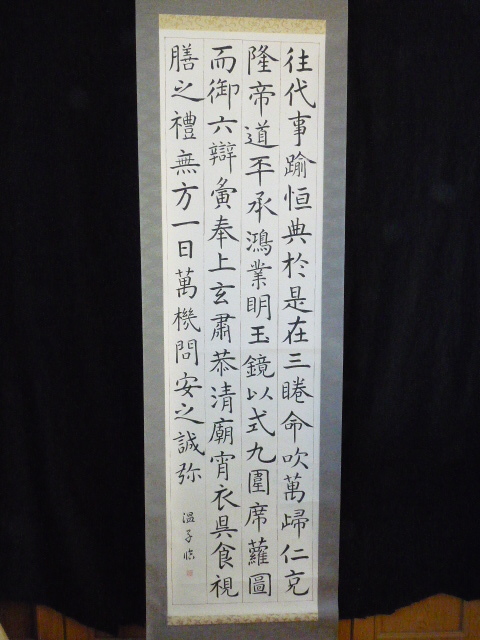 往代事踰恒典於是在三睠命吹萬歸仁克
隆帝道丕承鴻業明玉鏡以式九圍席蘿圖
而御六辯寅奉上玄肅恭清廟宵衣昃食視
膳之禮無方一日萬機問安之誠弥
温子臨